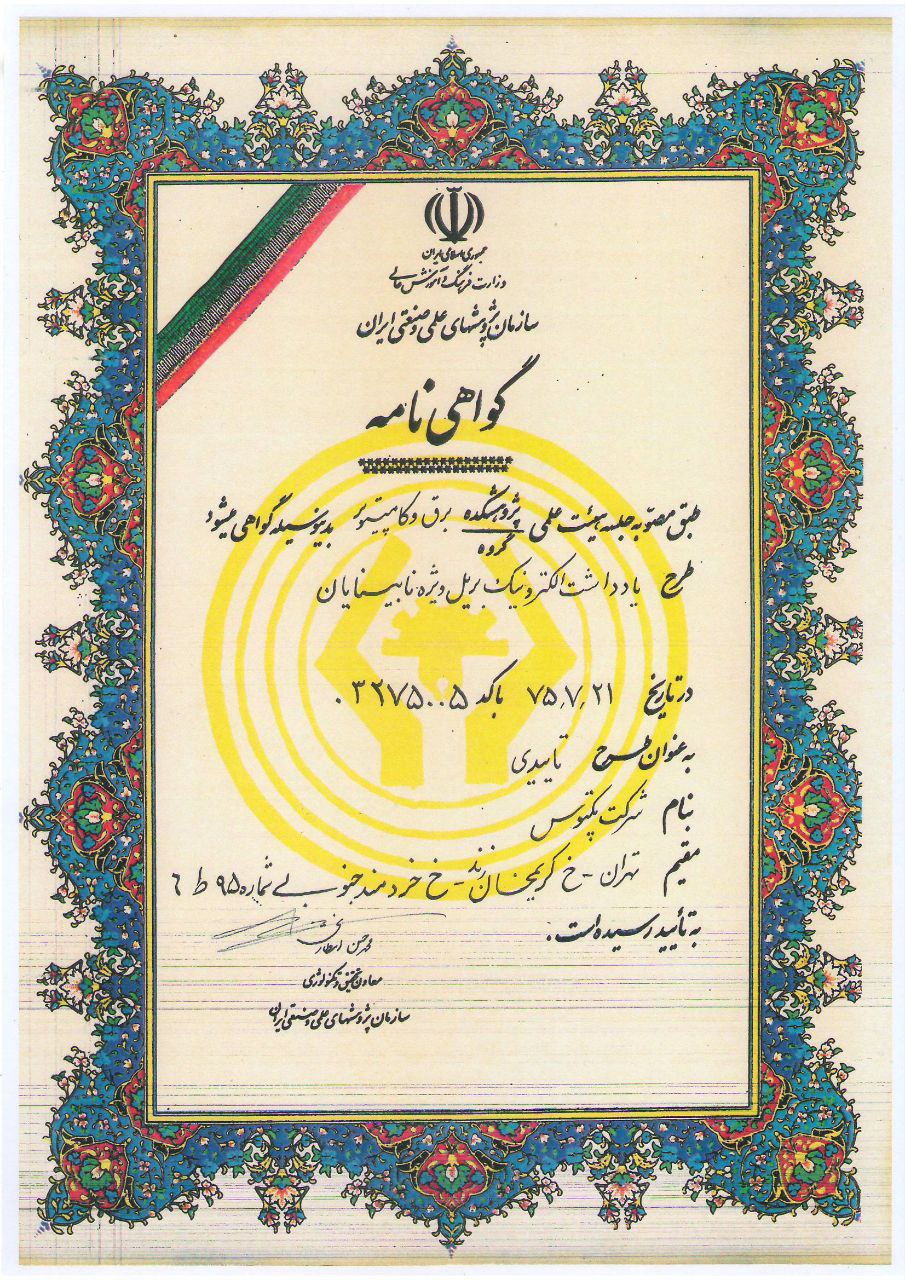 جمهوری اسلامی ایران
وزارت فرهنگ و آموزش عالی
سازمان پژوهشهای علمی و صنعتی ایران
گواهی نامه
طبق مصوبه جلسه هیئت علمی پژوهشکده برق و کامپیوتر بدینوسیله گواهی میشود
گروه
طرح یادداشت الکترونیک بریل ویژه نابینایان
در تاریخ ۷۵٫۷٫۲۱ با کد ۰۳۲۷۵۰۰۵
به عنوان طرح تاییدی
بنام شرکت پکتوس
مقیم تهران - خ کریمخان زند - خ خردمند جنوبی شماره ۹۵ ط ۶
به تأیید رسیده است.
محمد حسن
معاون تحقیق و تکنولوژی
سازمان پژوهشهای علمی و صنعتی ایران